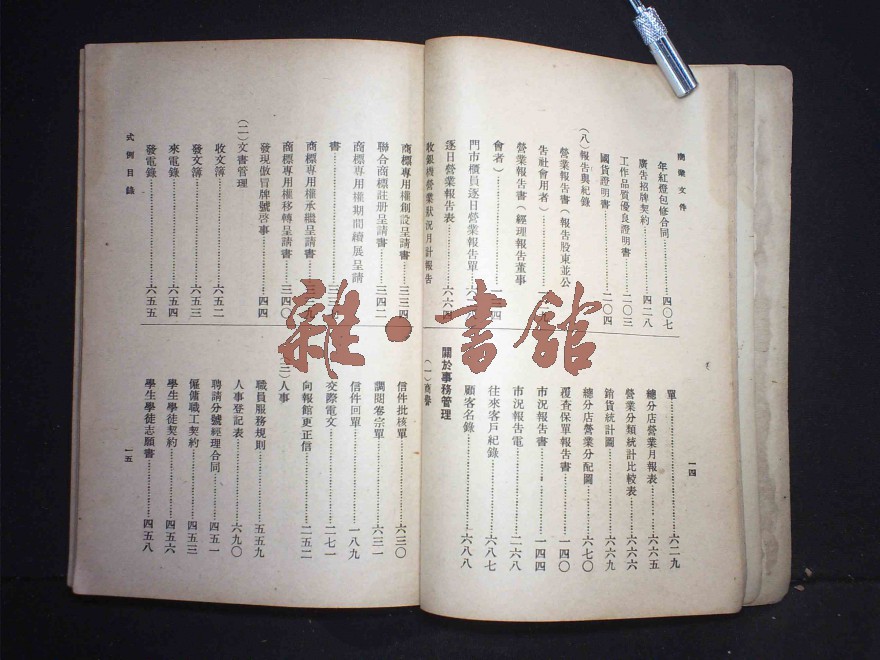 商業文件
年紅燈包修合同……四〇七
廣告招牌契約……四二八
工作品質優良證明書……二〇三
國貨證明書……二〇四
(八)報告與紀錄
營業報告書(報告股東並公
告社會用者)……一
營業報告書(經理報告董事
會者)……一三四
門市櫃員逐日營業報告單……六
逐日營業報告表……六六四
收銀機營業狀況月計報告
單……六二九
總分店營業月報表……六六五
營業分類統計比較表……六六六
銷貨統計圖……六六九
總分店營業分配圖……六七〇
覆查保單報告書……一四〇
市況報告書……一四四
市況報告電……二六八
往來客戶紀錄……六八七
顧客名錄……六八八
關於事務管理
(一)商譽
一四
商標專用權創設呈請書……三三四
聯合商標註册呈請書……三四二
商標專用權期間續展呈請
書……三三
商標專用權承繼呈請書……三三九
商標專用權移轉呈請書……三四〇
發現倣冒牌號啓事……四四
(二)文書管理
收文簿……六五二
發文簿……六五三
來電錄……六五四
發電錄……六五五
信件批核單……六三〇
調閱卷宗單……六三一
信件回單……一八九
交際電文……二七一
向報館更正信……二五二
(三)人事
職員服務規則……五五九
人事登記表……六九〇
聘請分號經理合同……四五一
僱傭職工契約……四五三
學生學徒契約……四五六
學生學徒志願書……四五八
式例目錄
一五
雜·書館